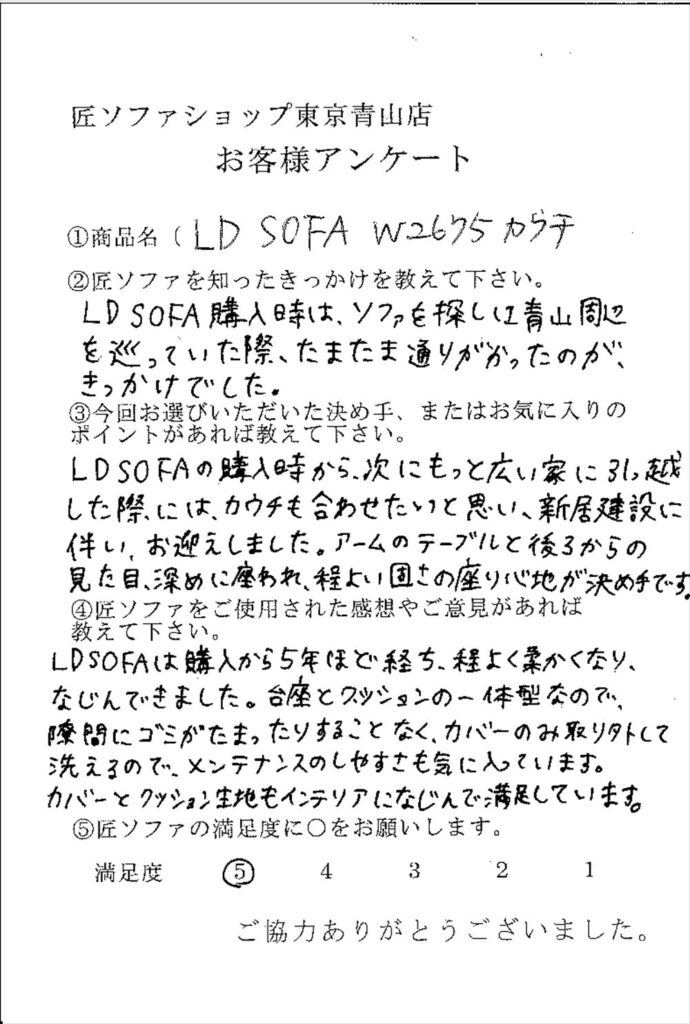 匠ソファショップ東京青山店
お客様アンケート
①商品名（LD SOFA W2675 カウチ
②匠ソファを知ったきっかけを教えて下さい。
LD SOFA購入時は、ソファを探しに青山周辺
を巡っていた際、たまたま通りがかったのが、
きっかけでした。
③今回お選びいただいた決め手、またはお気に入りの
ポイントがあれば教えて下さい。
LD SOFAの購入時から、次にもっと広い家に引っ越
した際には、カウチも合わせたいと思い、新居建設に
伴い、お迎えしました。アームのテーブルと後ろからの
見た目、深めに座われ、程よい固さの座り心地が決め手です。
④匠ソファをご使用された感想やご意見があれば
教えて下さい。
LD SOFAは購入から5年ほど経ち、程よく柔かくなり、
なじんできました。台座とクッションの一体型なので、
隙間にゴミがたまったりすることなく、カバーのみ取り外して
洗えるので、メンテナンスのしやすさも気に入っています。
カバーとクッション生地もインテリアになじんで満足しています。
⑤匠ソファの満足度に〇をお願いします。
満足度 ⑤ 4 3 2 1
ご協力ありがとうございました。